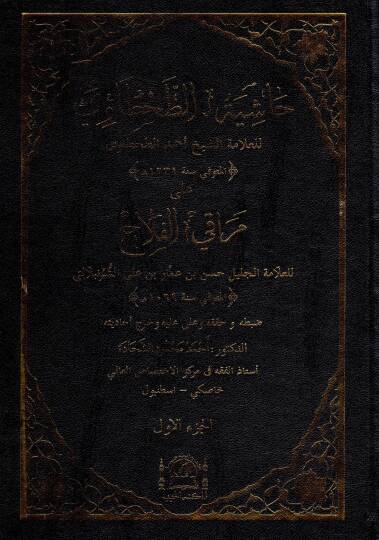 حاشية الطحطاوي
للعلامة الشيخ أحمد الطحطاوي
﴿المتوفى سنة ١٢٣١هـ﴾
على
مراقي الفلاح
للعلامة الجليل حسن بن عمار بن علي الشرنبلالي
﴿المتوفى سنة ١٠٦٩هـ﴾
ضبطه و حققه وعلق عليه وخرج أحاديثه
الدكتور
أستاذ الفقه في مركز الاختصاص العالي
خاصكي - اسطنبول
الجزء الأول